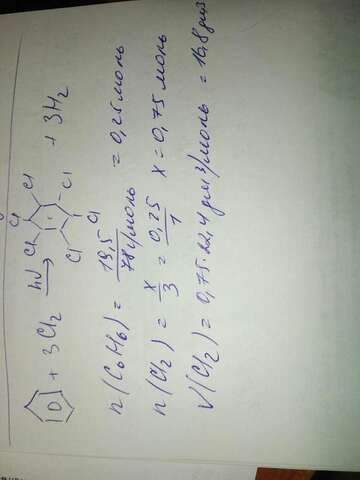 + 3Cl₂ hν→ Cl Cl Cl Cl Cl Cl + 3H₂
n(C₆H₆) = 19,5 / 78г/моль = 0,25 моль
n(Cl₂) = x/3 = 0,25/1 x = 0,75 моль
V(Cl₂) = 0,75·22,4 дм3/моль = 16,8 дм3